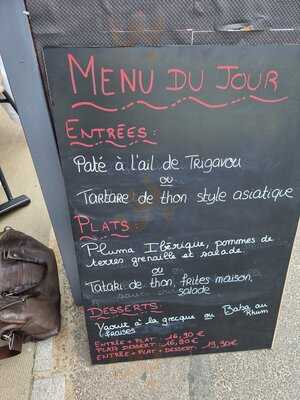 MENU DU JOUR
ENTRÉES :
Paté à l'ail de Trigavou
ou
Tartare de thon style asiatique
PLATS :
Pluma Ibérique, pommes de
terres grenaille et salade.
ou
Tataki de thon, frites maison,
salade
DESSERTS :
Yaourt à la grecque ou Baba au
fraises Rhum
ENTRÉE + PLAT : 16,90 €
PLAT + DESSERT : 16,90 €
ENTRÉE + PLAT + DESSERT : 19,90 €